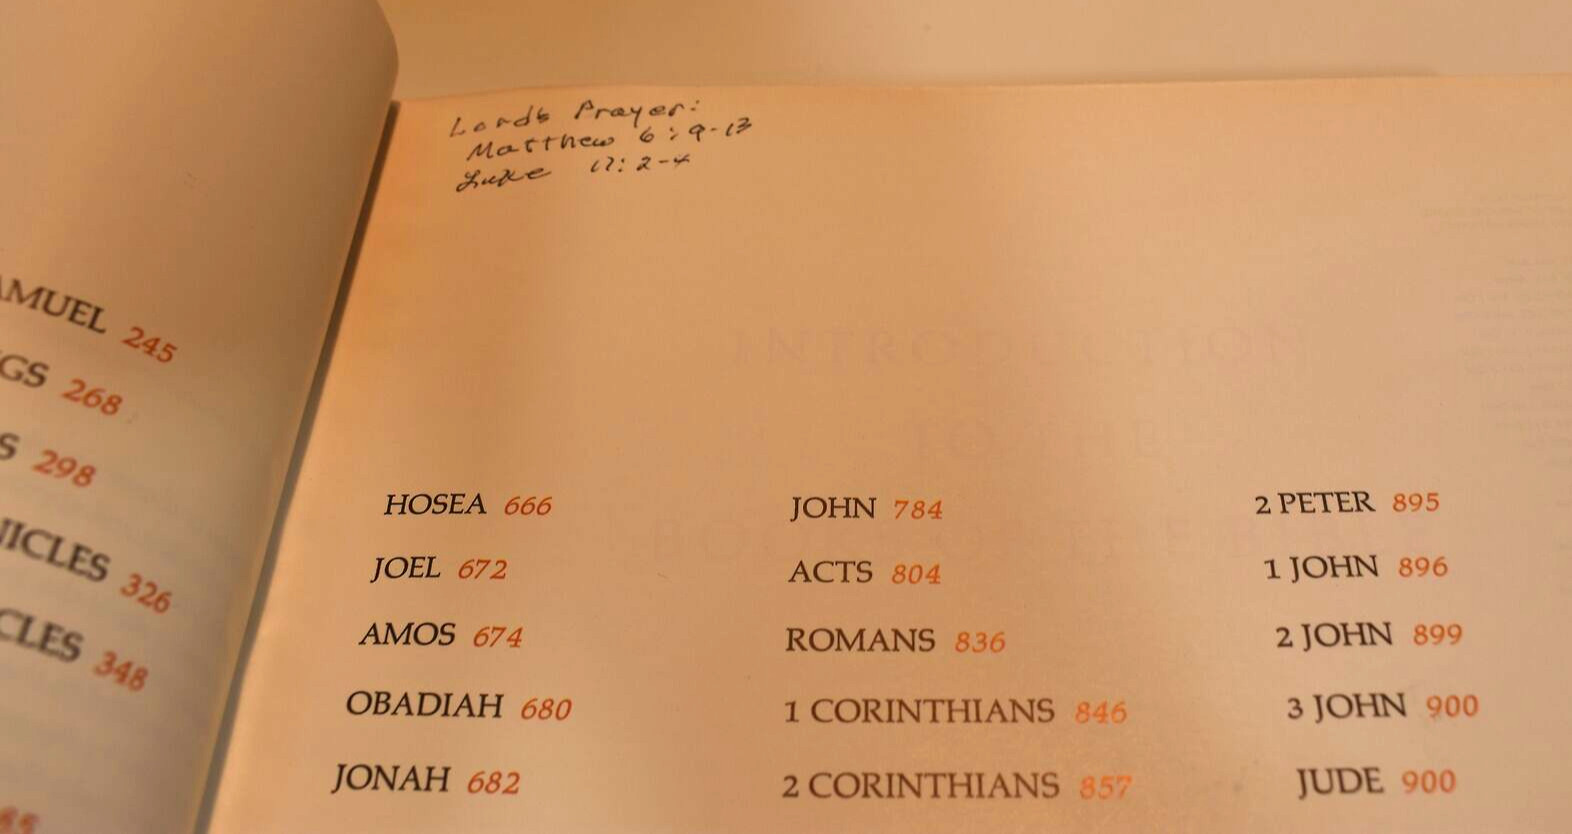 Lord's Prayer:
Matthew 6:9-13
Luke 17:2-4
AMUEL 245
GS 268
S 298
NICLES 326
CLES 348
INTRODUCTION
TO THE
HOSEA 666
JOEL 672
AMOS 674
OBADIAH 680
JONAH 682
JOHN 784
ACTS 804
ROMANS 836
1 CORINTHIANS 846
2 CORINTHIANS 857
2 PETER 895
1 JOHN 896
2 JOHN 899
3 JOHN 900
JUDE 900